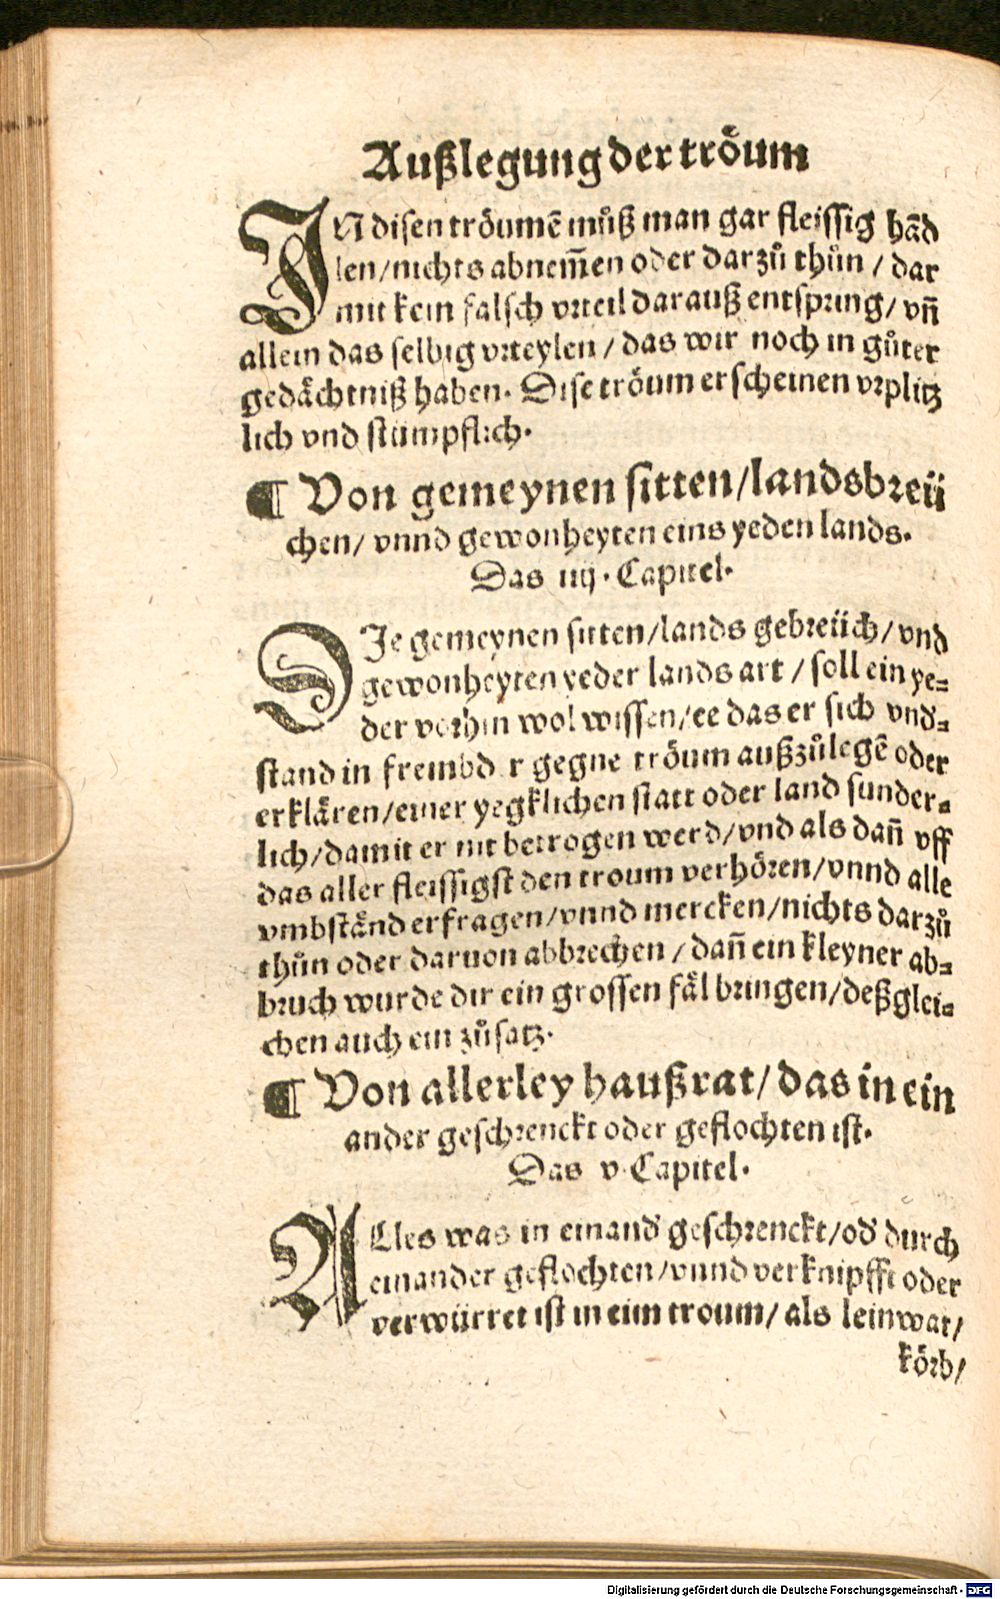 Außlegung der tröum
IN disen tröumē můß man gar fleissig hād
len/nichts abnem̄en oder darzů thůn / dar
mit kein falsch vrteil darauß entspring/ vn̄
allein das selbig vrteylen / das wir noch in gůter
gedächtniß haben. Dise tröum erscheinen vrplitz
lich vnd stümpflich.
¶ Von gemeynen sitten/landsbreü
chen/ vnnd gewonheyten eins yeden lands.
Das iiij. Capitel.
DIe gemeynen sitten/lands gebreüch/ vnd
gewonheyten yeder lands art / soll ein ye⸗
der vorhin wol wissen/ee das er sich vnd⸗
stand in frembder gegne tröum außzůlegē oder
erklären/einer yegklichen statt oder land sunder⸗
lich/damit er nit betrogen werd/vnd als dan̄ vff
das aller fleissigst den troum verhören/vnnd alle
vmbständ erfragen/vnnd mercken/nichts darzů
thůn oder daruon abbrechen / dan̄ ein kleyner ab⸗
bruch wurde dir ein grossen fäl bringen/deßglei⸗
chen auch ein zůsatz.
¶ Von allerley haußrat/ das in ein
ander geschrenckt oder geflochten ist.
Das v. Capitel.
ALles was in einand' geschrenckt/od' durch
einander geflochten/vnnd verknipfft oder
verwürret ist in eim troum/ als leinwat/
körb/
Digitalisierung gefördert durch die Deutsche Forschungsgemeinschaft - DFG